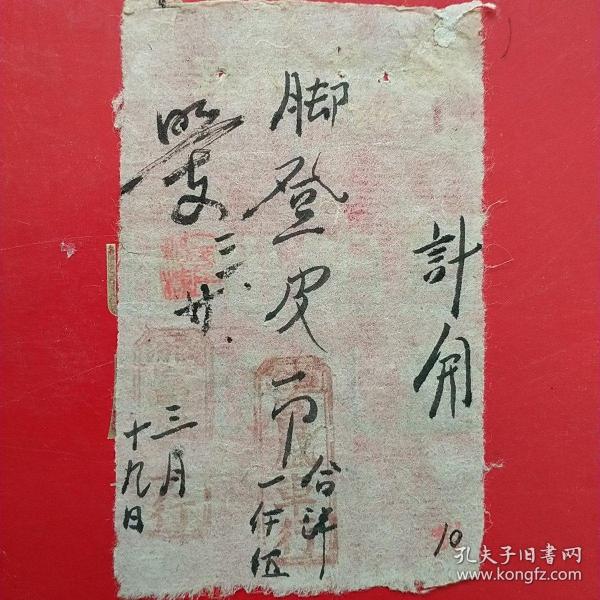 計開
脚登皮一巾
合洋
一仟伍
照支
三.廿.
三月
十九日
10
孔夫子旧書网
www.kongfz.com